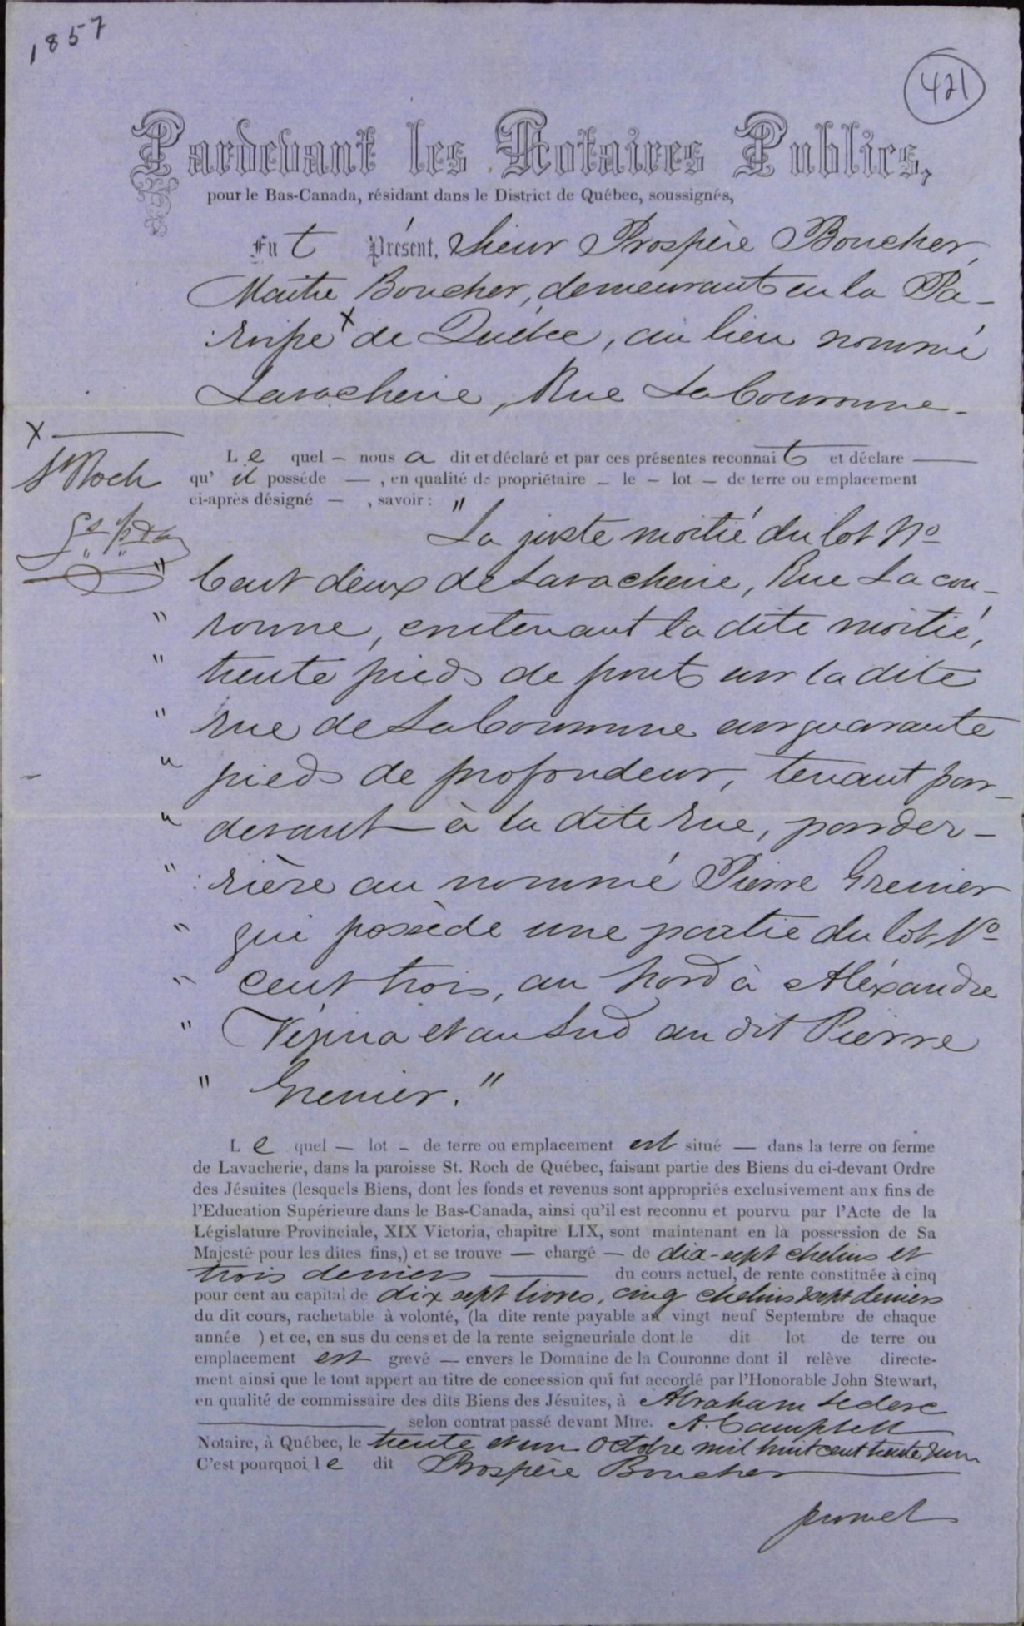 1857
421
Pardevant les Notaires Publics,
pour le Bas-Canada, résidant dans le District de Québec, soussignés,
Fut Présent, Sieur Prospère Boucher,
Maître Boucher, demeurant en la Pa-
roisse x de Québec, au lieu nommé
Lavacherie, Rue La Couronne.
x
St Roch
Le quel — nous a dit et déclaré et par ces présentes reconnait et déclare
qu' il possède — , en qualité de propriétaire — le — lot — de terre ou emplacement
ci-après désigné — , savoir : "
La juste moitié du lot No
" Cent deux de Lavacherie, Rue La cou-
" ronne, contenant la dite moitié,
" trente pieds de front sur la dite
" rue de La Couronne sur quarante
" pieds de profondeur, tenant par-
" devant à la dite rue, par der-
" rière au nommé Pierre Grenier
" qui possède une partie du lot No
" cent trois, au Nord à Aléxandre
" Vézina et au Sud au dit Pierre
" Grenier."
Le quel — lot — de terre ou emplacement est situé — dans la terre ou ferme
de Lavacherie, dans la paroisse St. Roch de Québec, faisant partie des Biens du ci-devant Ordre
des Jésuites (lesquels Biens, dont les fonds et revenus sont appropriés exclusivement aux fins de
l'Education Supérieure dans le Bas-Canada, ainsi qu'il est reconnu et pourvu par l'Acte de la
Législature Provinciale, XIX Victoria, chapître LIX, sont maintenant en la possession de Sa
Majesté pour les dites fins,) et se trouve — chargé — de dix-sept chelins et
trois deniers du cours actuel, de rente constituée à cinq
pour cent au capital de dix sept livres, cinq chelins sept deniers
du dit cours, rachetable à volonté, (la dite rente payable au vingt neuf Septembre de chaque
année ) et ce, en sus du cens et de la rente seigneuriale dont le dit lot de terre ou
emplacement est grevé — envers le Domaine de la Couronne dont il relève directe-
ment ainsi que le tout appert au titre de concession qui fut accordé par l'Honorable John Stewart,
en qualité de commissaire des dits Biens des Jésuites, à Abraham Leclerc
selon contrat passé devant Mtre. A. Campbell
Notaire, à Québec, le trente et un Octobre mil huit cent trente & un
C'est pourquoi le dit Prospère Boucher
promet